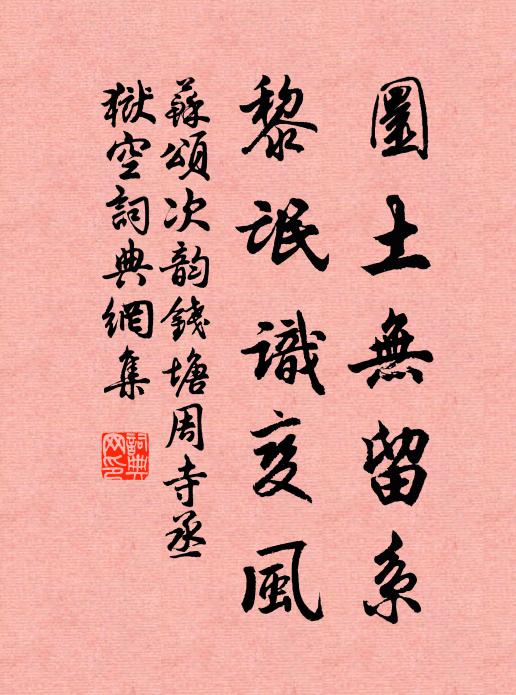 圜土無留系
黎氓識变風
蘇頌次韵錢塘周寺丞
獄空詞典網集
詞典
网印